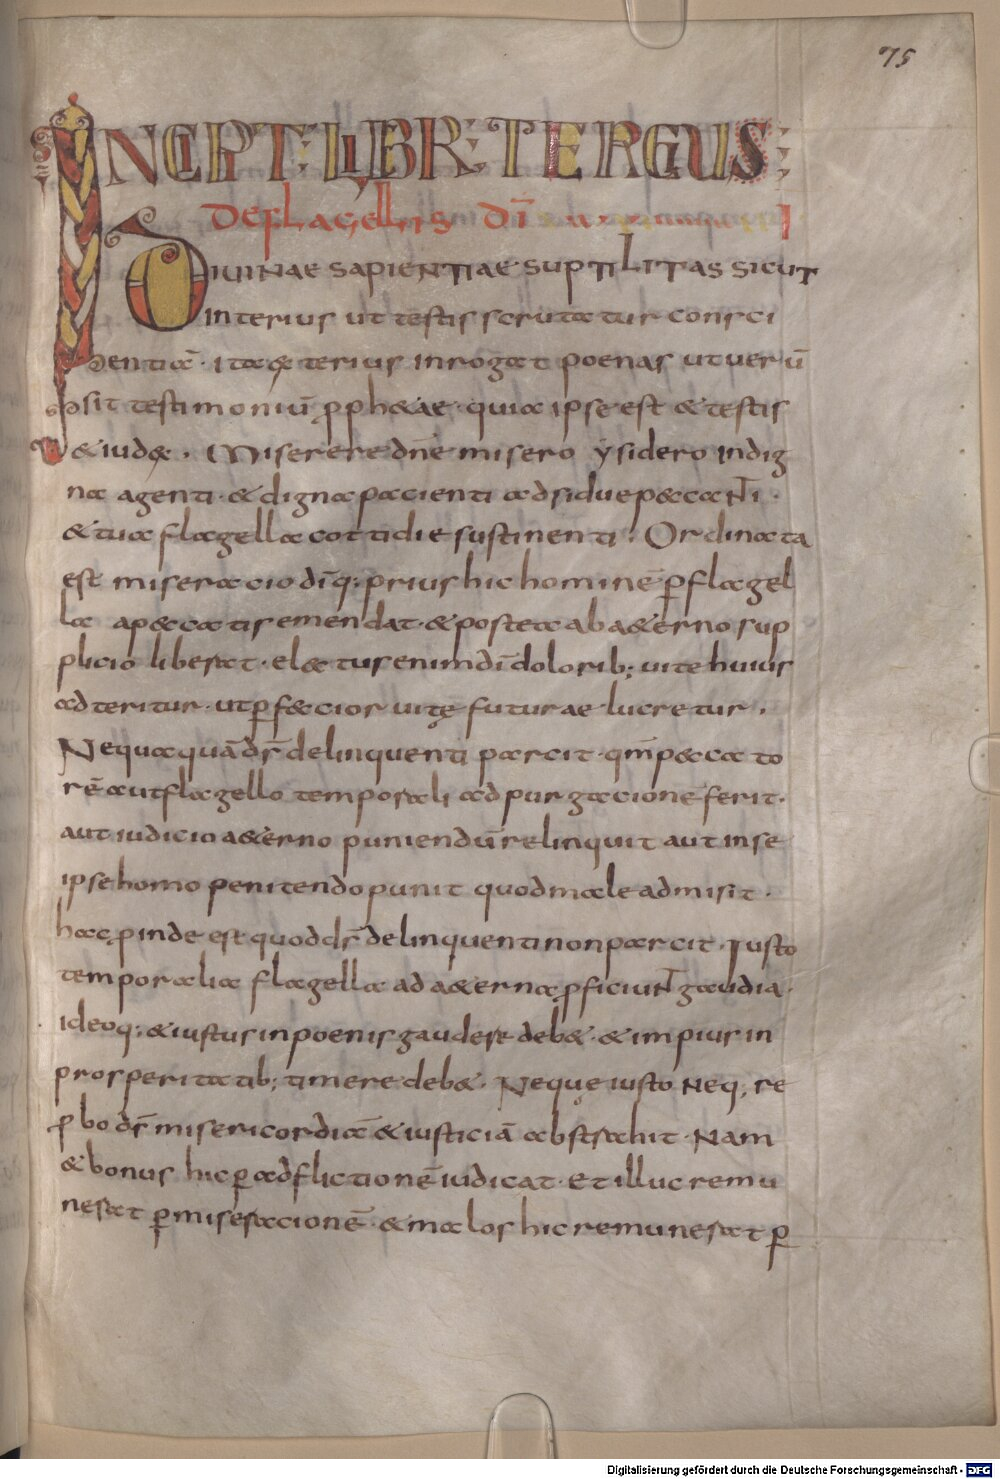 75
INCIPIT LIBR TERCIUS
De flagellis dī I
Divinae sapientiae suptilitas sicut
interius ut testis scrutatur consci
dentiā · ita & terius inrogat poenas ut verū
sit testimoniū ꝓph&ae · quia ipse est & testis
& iud& · Miserere dn̄e misero ysidero indig
na agenti · & digna pacienti adsidue p&canti ·
& tua flagella cottidie sustinenti · Ordinata
est miseracio dīq; prius hic hominē ꝑ flagel
la a p&catis emendat · & postea ab a&erno sup
plicio liberat · el&tus enim dī dolorib; vite huius
adteritur · ut ꝑf&cior vitę futurae lucretur ·
Nequaquā dr̄ delinquenti parcit · qm̄ p&cato
rē aut flagello temporali ad purgacionē ferit ·
aut iudicio a&erno puniendū relinquit aut in se
ipse homo penitendo punit quod male admisit ·
hac ꝓinde est quod dr̄ delinquenti non parcit · Iusto
temporalia flagella ad a&erna ꝓficiunt gaudia ·
ideoq; & iustus in poenis gaudere deb& · & impius in
prosperitatib; timere deb& · Neque iusto neq; re
ꝓbo dr̄ misericordiā & iusticiā abstrahit · Nam
& bonus hic ꝑ adflictionē iudicat · Et illuc remu
nerat ꝑ miseracionē · & malos hic remunerat ꝑ
Digitalisierung gefördert durch die Deutsche Forschungsgemeinschaft - DFG